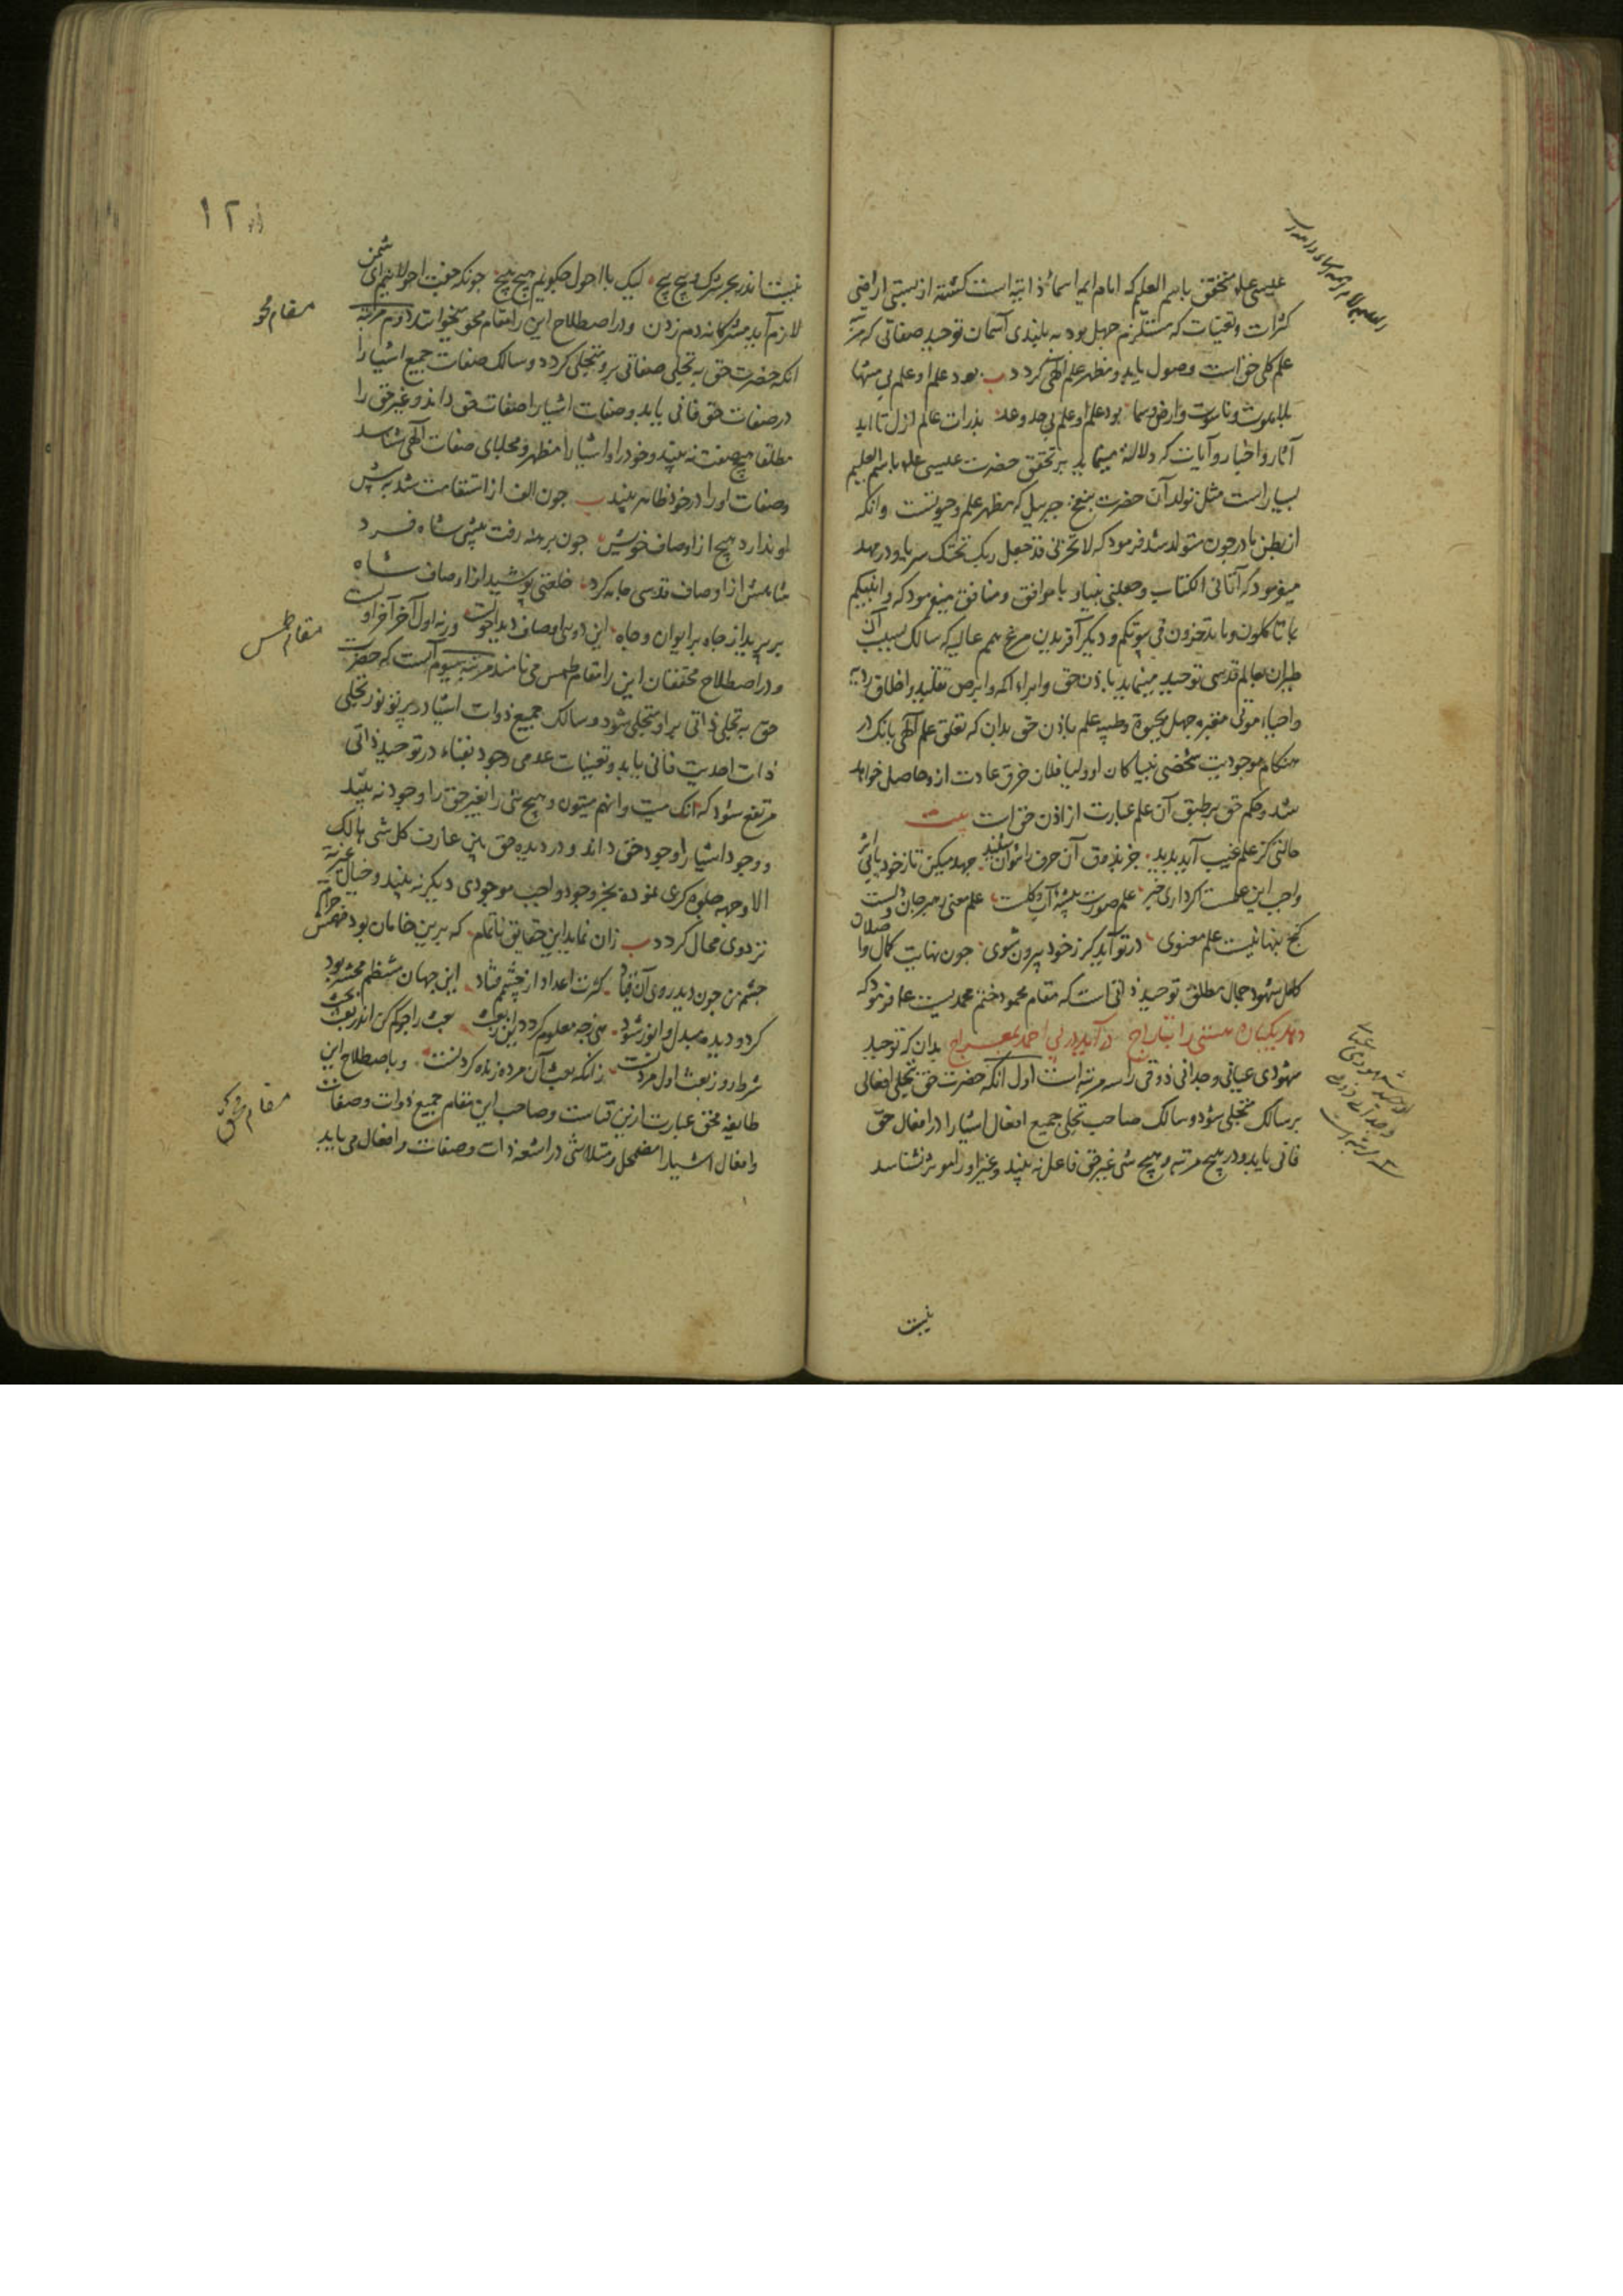 عیسی علم متحقق باسم العلیم که امام ایمه اسماء ذاتیه است کشته از پستی اراضی
کثرات و تعینات که مستلزم جهل بود به بلندی آسمان توحید صفاتی که مر
علم کلی حق است وصول یابد و مظهر علم الهی کردد ب بود علم او علم بی منتها
بلاهوت و ناسوت و ارض و سما بود علم او علم بی حد و عد بذرات عالم ازل تا ابد
آثار و اخبار و آیات که دلاله مینماید بر تحقق حضرت عیسی علم باسم العلیم
بسیار است مثل تولد آن حضرت بنفخ جبرییل که مظهر علم و حیوتست و انکه
از بطن مادر چون متولد شد فرمود که لا تحزنی قد جعل ربک تحتک سریا و در مهد
میفرمود که آتانی الکتاب و جعلنی نبیا و با موافق و منافق میفرمود که و انبیکم
بما تاکلون و ما تدخرون فی بیوتکم و دیگر آفریدن مرغ همم عالیه که سالک بسبب آن
طیران بعالم قدسی توحید مینماید باذن حق و ابراء اکمه و ابرص تقلید و اخلاق ردیه
و احیاء موتی مقبره جهل بحیوة طیبه علم باذن حق بدان که تعلق علم الهی بانک در
هنکام موجودیت شخصی نبیا کان او ولیا فلان خرق عادت ازو حاصل خواهد
شد و حکم حق بر طبق آن علم عبارت از اذن حق است بیت
حالتی کز علم غیب آید پدید جز بذوق آن حرف نتوان شنید جهد میکن تا ز خود یابی اثر
واجب این علمست اکر داری خبر علم صورت پیشه آب و کلست علم معنی رهبر جان و دلست
کنج پنهانیست علم معنوی در تو آید کر ز خود بیرون شوی چون نهایت کمال واصلان
کامل شهود جمال مطلق توحید ذاتی است که مقام محمود ختم محمدیست علم فرمود که
دهد یکباره هستی را بتاراج درآید در پی احمد بمعراج بدان که توحید
شهودی عیانی وجدانی ذوقی را سه مرتبه است اول انکه حضرت حق بتجلی افعالی
بر سالک متجلی شود و سالک صاحب تجلی جمیع افعال اشیا را در افعال حق
فانی یابد و در هیچ مرتبه و هیچ شی غیر حق فاعل نه بیند و غیر او را موثر نشناسد
نیست
۱۲
نیست اندر بحر شرک و پیچ پیچ لیک با احول چکویم هیچ هیچ چونکه جفت احولانیم ای شمن
لازم آید مشرکانه دم زدن و در اصطلاح این را مقام محو میخوانند دوم مرتبه
انکه حضرت حق به تجلی صفاتی برو متجلی کردد و سالک صفات جمیع اشیا را
در صفات حق فانی یابد و صفات اشیا را صفات حق داند و غیر حق را
مطلقا هیچ صفت نه بیند و خود را و اشیا را مظهر و مجلای صفات الهی شناسد
و صفات او را در خود ظاهر بیند ب چون الف از استقامت شد به پیش
او ندارد هیچ از اوصاف خویش چون برهنه رفت پیش شاه فرد
شاهش از اوصاف قدسی جامه کرد خلعتی پوشید از اوصاف شاه
بر پرید از چاه بر ایوان و جاه این دویی اوصاف دید احولست ورنه اول آخر آخر اولست
و در اصطلاح محققان این را مقام طمس می نامند مرتبه سیوم آنست که حضرت
حق به تجلی ذاتی بر او متجلی شود و سالک جمیع ذوات اشیا در پرتو نور تجلی
ذات احدیت فانی یابد و تعینات عدمی وجود بفناء در توحید ذاتی
مرتفع شود که انک میت و انهم میتون و هیچ شی را بغیر حق را وجود نه بیند
و وجود اشیا را وجود حق داند و در دیده حق بین عارف کل شی هالک
الا وجهه جلوه کری نموده بجز وجود واجب موجودی دیکر نه بیند و خیال غیریة
نزد وی محال کردد ب زان نماید این حقایق ناتمام که برین خامان بود فهمش حرام
چشم من چون دید روی آن قباد کثرت اعداد از چشمم فتاد این جهان منتظم محشر بود
کر دو دیده مبدل و انور شود هی چه معلوم کردد این ز بعث بعث را جو کم کن اندر بعث بحث
شرط روز بعث اول مردنست زانکه بعث آن مرده زنده کردنست و باصطلاح این
طایفه محق عبارت ازین فناست و صاحب این مقام جمیع ذوات و صفات
و افعال اشیا را مضمحل و متلاشی در اشعه ذات و صفات و افعال می یابد
مقام محو
مقام طمس
مقام محق